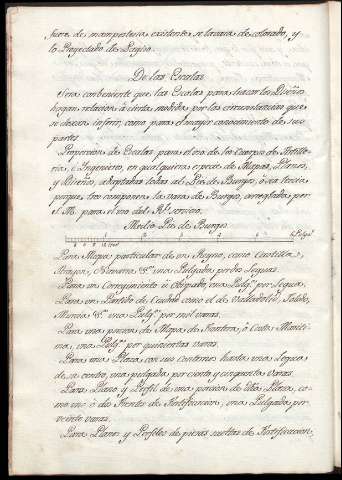 fuere de mamposteria existente, se lavara de colorado, y
lo Proyectado de Negro.
De las Escalas
Sera conbeniente que las Escalas para trazar los Diseños
hagan relacion à cierta medida por las circunstancias que
se dexan inferir, como para el mayor conocimiento de sus
partes.
Proporcion de Escalas para el uso de los Cuerpos de Artille-
ria, è Ingenieros, en qualquiera especie de Mapas, Planos,
y Diseños, adaptadas todas al Pie de Burgos, ò sea tercia
porque tres componen la vara de Burgos, arreglada por
S. M. para el uso del Rl. servicio.
Medio Pie de Burgos
Para Mapa particular de un Reyno, como Castilla,
Aragon, Navarra &a una Pulgada por dos Leguas.
Para un Corregimiento ù Obispado, una Pulga. por Legua.
Para un Partido de Ciudad como el de Valladolid, Toledo,
Murcia &a una Pulga. por mil varas.
Para una porcion de Mapa de Frontera, ò Costa Mariti-
ma, una Pulga. por quinientas varas.
Para una Plaza con sus contornos hasta una Legua
de su centro, una pulgada por ciento y cinquenta varas.
Para Plano y Perfil de una porcion de esta Plaza, co-
mo uno ò dos Frentes de Fortificacion, una Pulgada por
veinte varas.
Para Planos y Perfiles de piezas sueltas de Fortificacion,